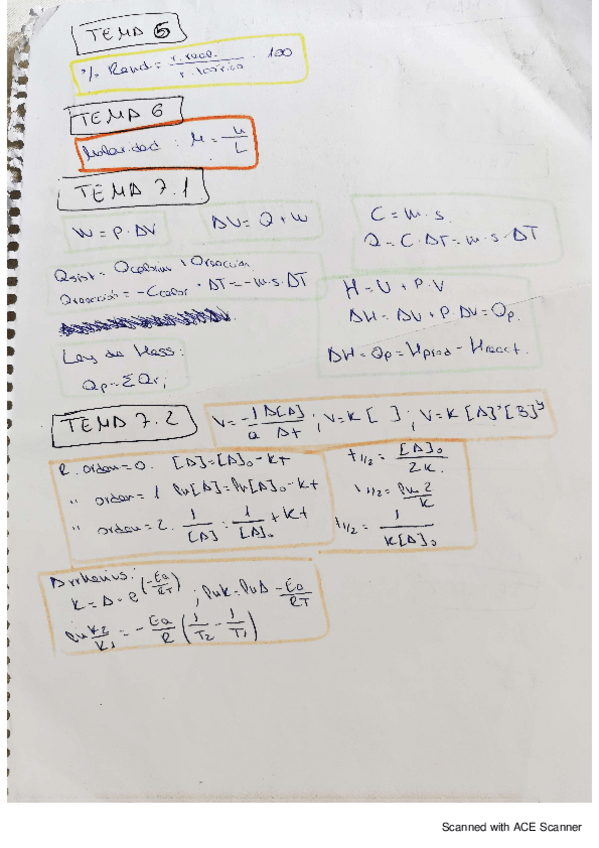 TEMA 5
% Rend = r. real / r. teórico · 100
TEMA 6
Molaridad : M = n / L
TEMA 7.1
W = P · ΔV
ΔU = Q + W
C = m · s
Q = C · ΔT = m · s · ΔT
Qsist = Qcalorim + Qreacción
Qreacción = - Ccalor · ΔT = - m · s · ΔT
H = U + P · V
ΔH = ΔU + P · ΔV = Qp
ΔH = Qp = Hprod - Hreact.
Ley de Hess:
Qp = ΣQr;
TEMA 7.2
V = - 1/a Δ[A]/Δt ; V = K [ ] ; V = K [A]ˣ [B]ʸ
R. orden = 0. [A] = [A]₀ - Kt
" orden = 1 ln[A] = ln[A]₀ - Kt
" orden = 2. 1/[A] = 1/[A]₀ + Kt
t 1/2 = [A]₀ / 2K.
t 1/2 = ln 2 / K
t 1/2 = 1 / K[A]₀
Arrhenius:
K = A · e^(-Ea/RT) ; lnK = lnA - Ea/RT
ln K2/K1 = - Ea/R (1/T2 - 1/T1)
Scanned with ACE Scanner